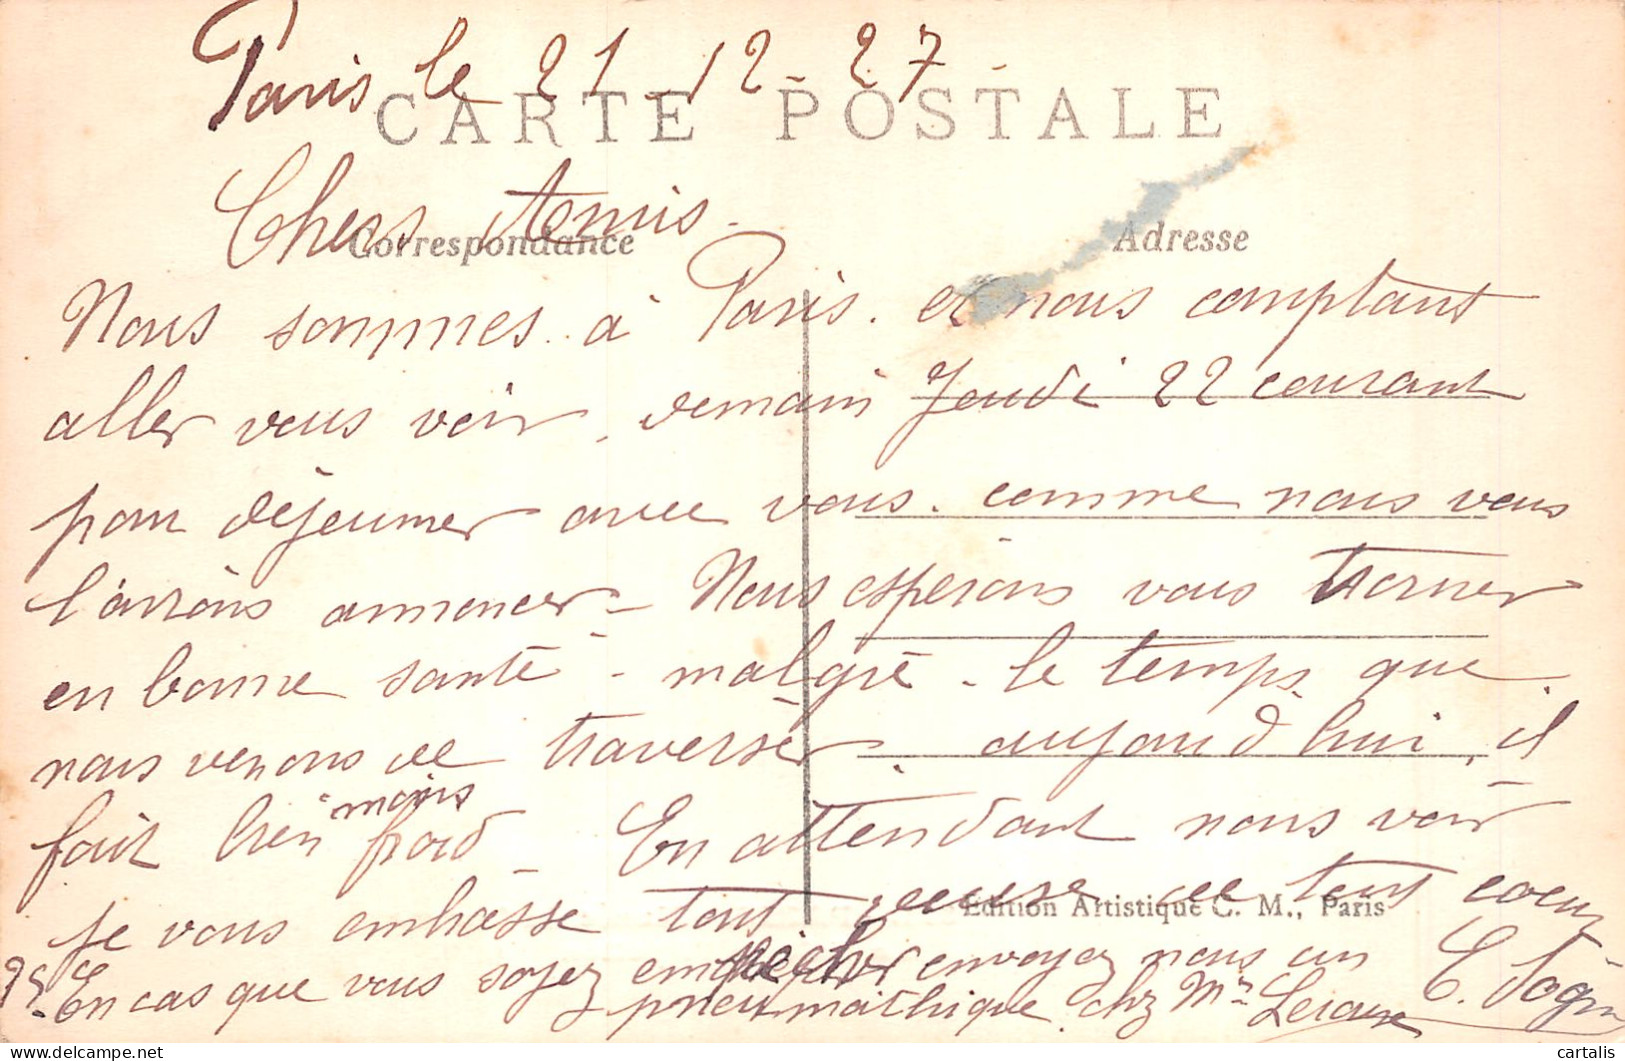 Paris le 21-12-27-
CARTE POSTALE
Chers Amis-
Correspondance
Adresse
Nous sommes à Paris. et nous comptant
aller vous voir, demain Jeudi 22 courant
pour déjeuner avec vous. comme nous vous
l'avions annoncer- Nous esperons vous trouver
en bonne santé - malgré - le temps que
nous venons de traverser. aujourd'hui, il
fait bien moins froid - En attendant nous voir
je vous embrasse tout de tout coeur
Edition Artistique C. M., Paris
En cas que vous soyez empecher envoyez nous un
pneumathique chz Mr
cartalis
delcampe.net